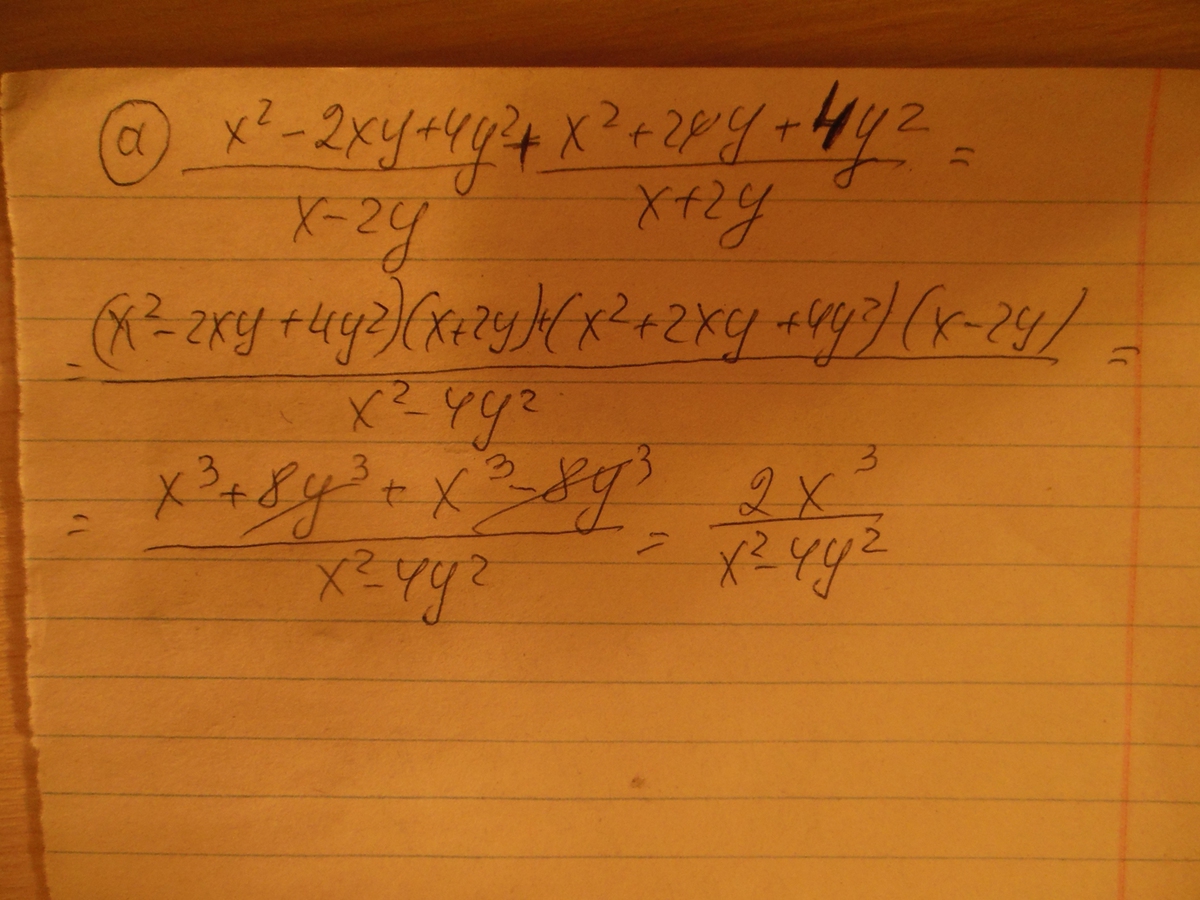 а) (x² - 2xy + 4y²)/(x - 2y) + (x² + 2xy + 4y²)/(x + 2y) =
= ((x² - 2xy + 4y²)(x + 2y) + (x² + 2xy + 4y²)(x - 2y))/(x² - 4y²) =
= (x³ + 8y³ + x³ - 8y³)/(x² - 4y²) = 2x³/(x² - 4y²)